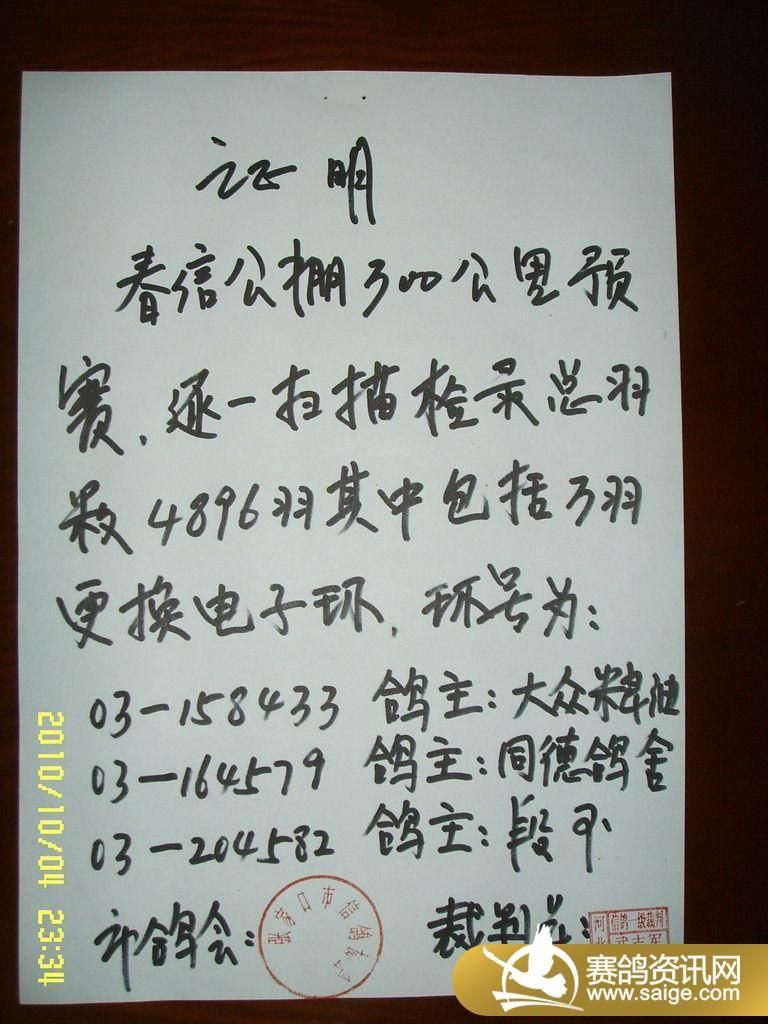 证明
春信公棚300公里预
赛,逐一扫描检录总羽
数4896羽其中包括3羽
更换电子环,环号为:
03-158433 鸽主:大众粮油
03-164579 鸽主:同德鸽舍
03-204582 鸽主:段
市鸽会:
张家口市信鸽协会
裁判
河北
信鸽一级裁判
武志军
2010/10/04 23:34
赛鸽资讯网
www.saige.com